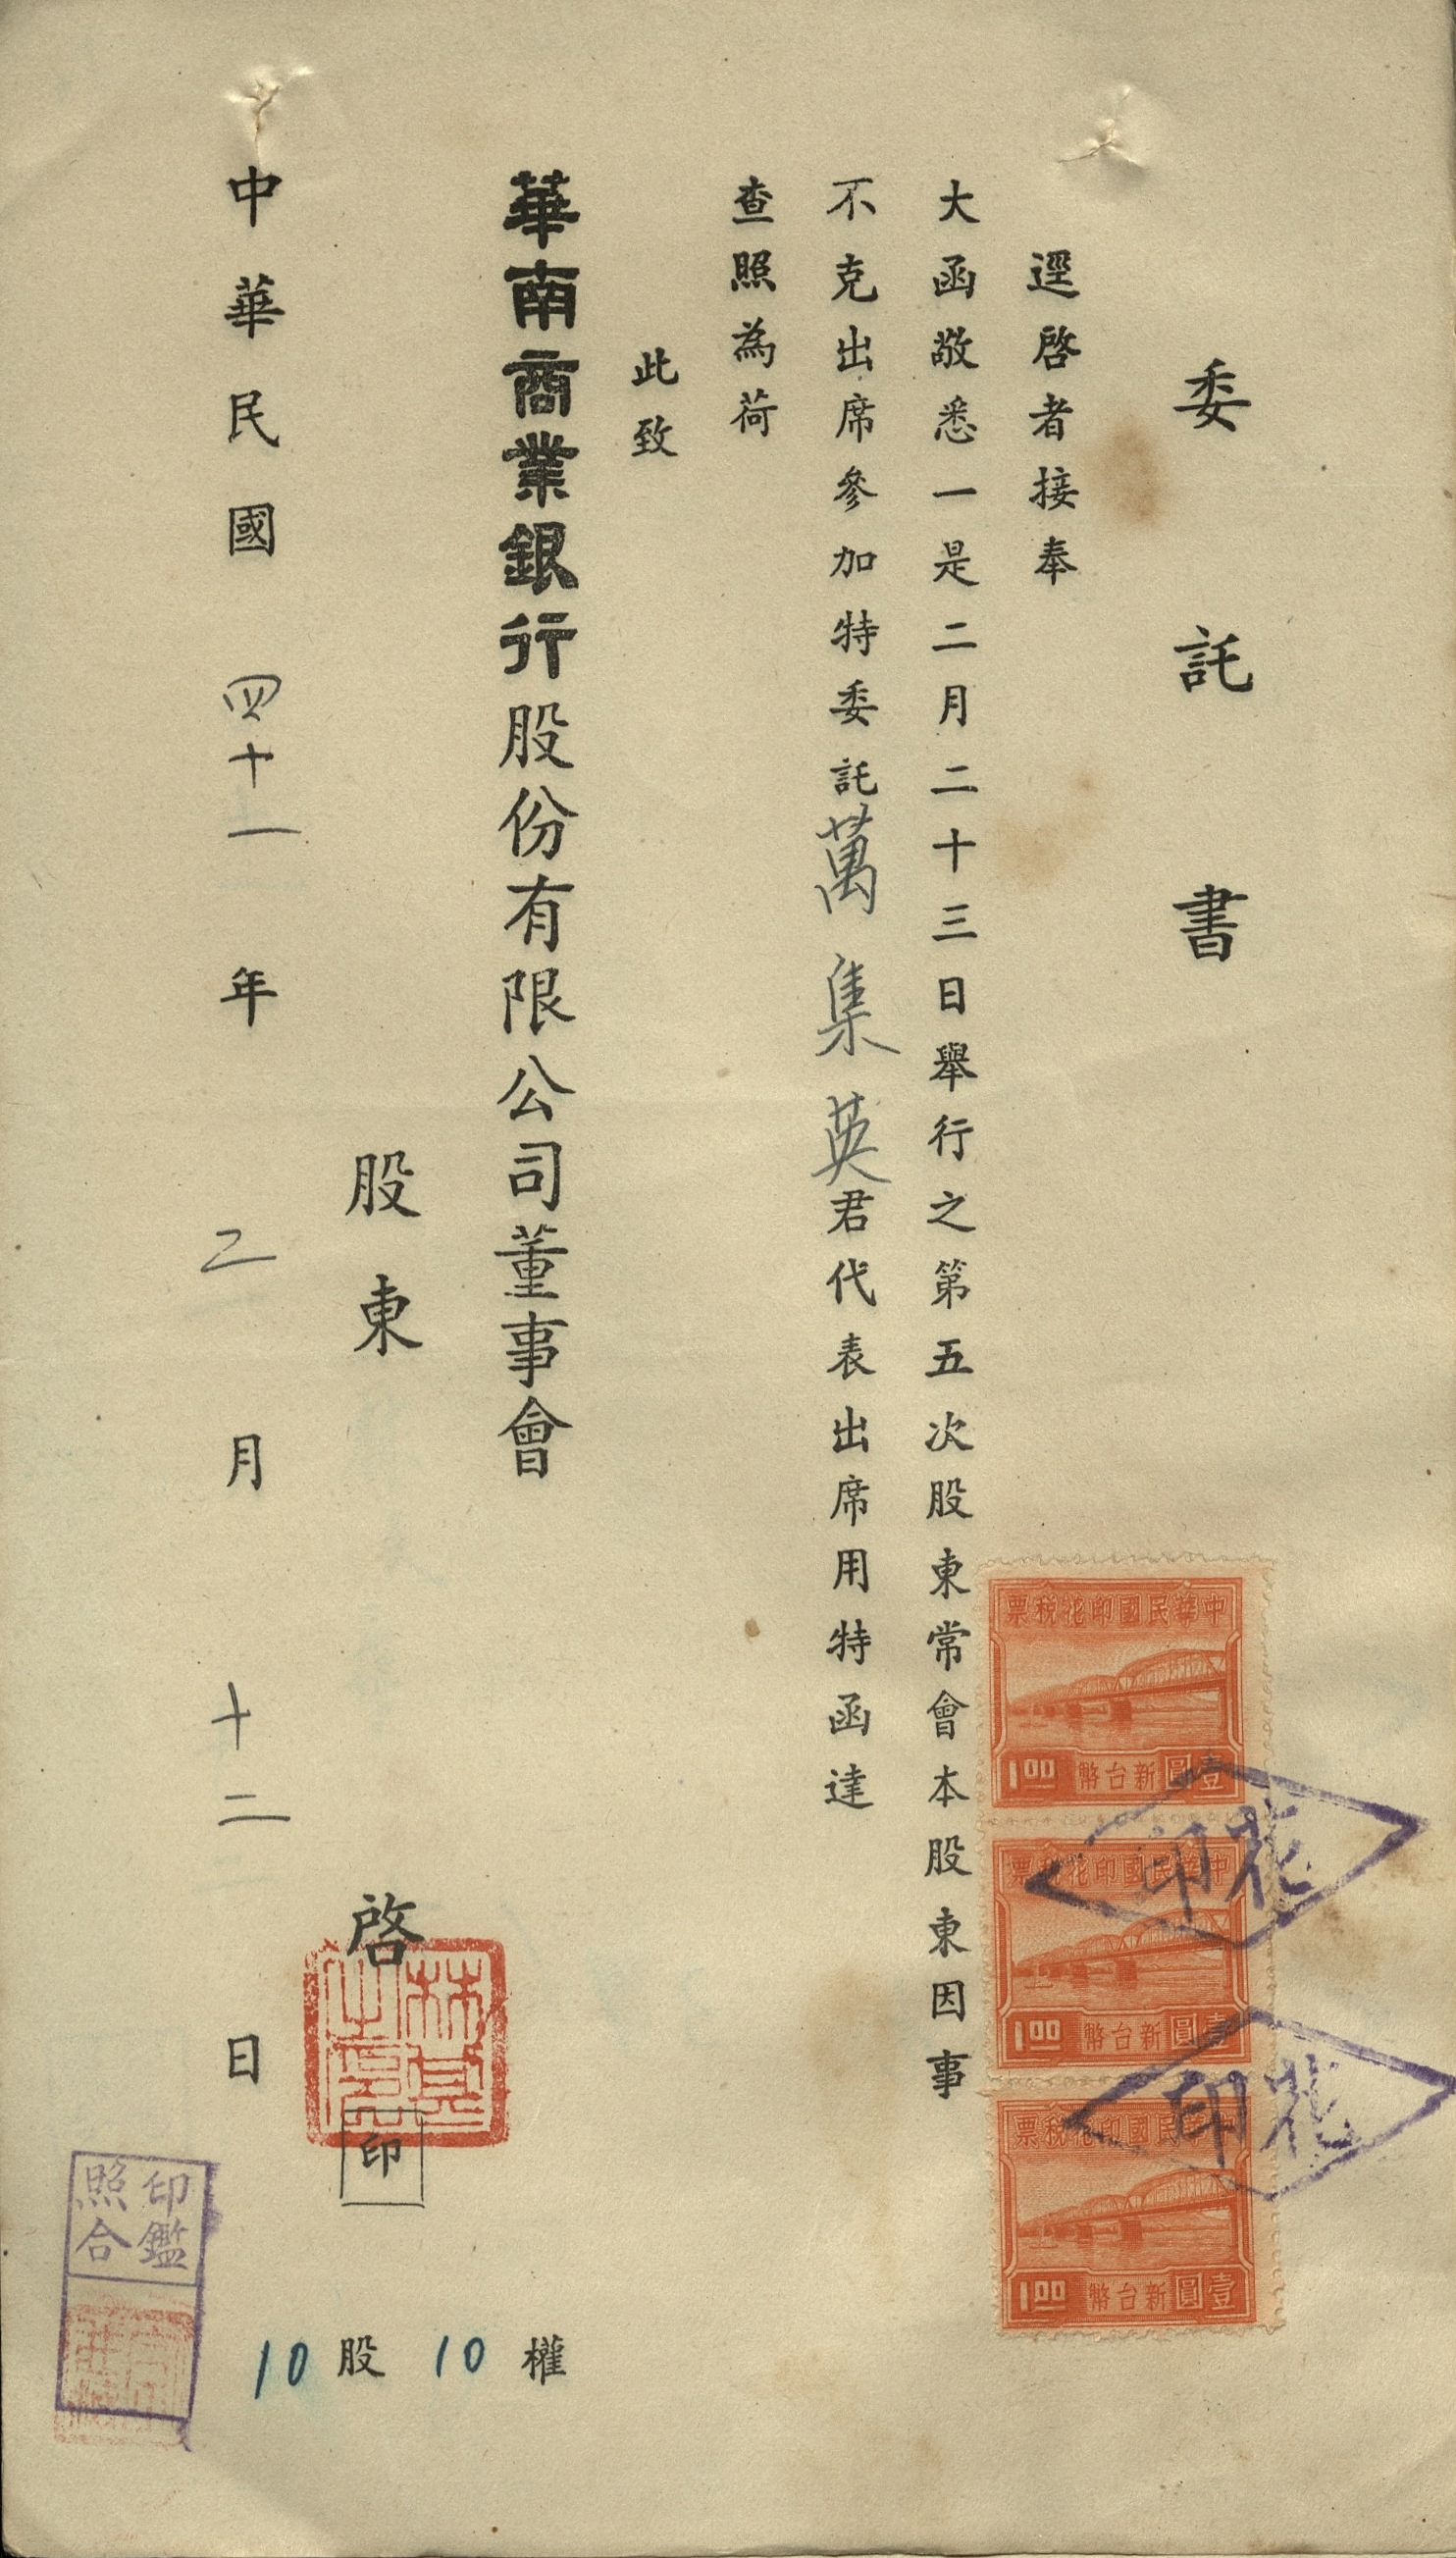 委託書
逕啓者接奉
大函敬悉一是二月二十三日舉行之第五次股東常會本股東因事
不克出席參加特委託萬集英君代表出席用特函達
查照為荷
此致
華南商業銀行股份有限公司董事會
股東 啓
印
10股10權
中華民國四十一年二月十二日
中華民國印花稅票
1.00 新台幣壹圓
中華民國印花稅票
1.00 新台幣壹圓
中華民國印花稅票
1.00 新台幣壹圓
印花
印花
印鑑
照合